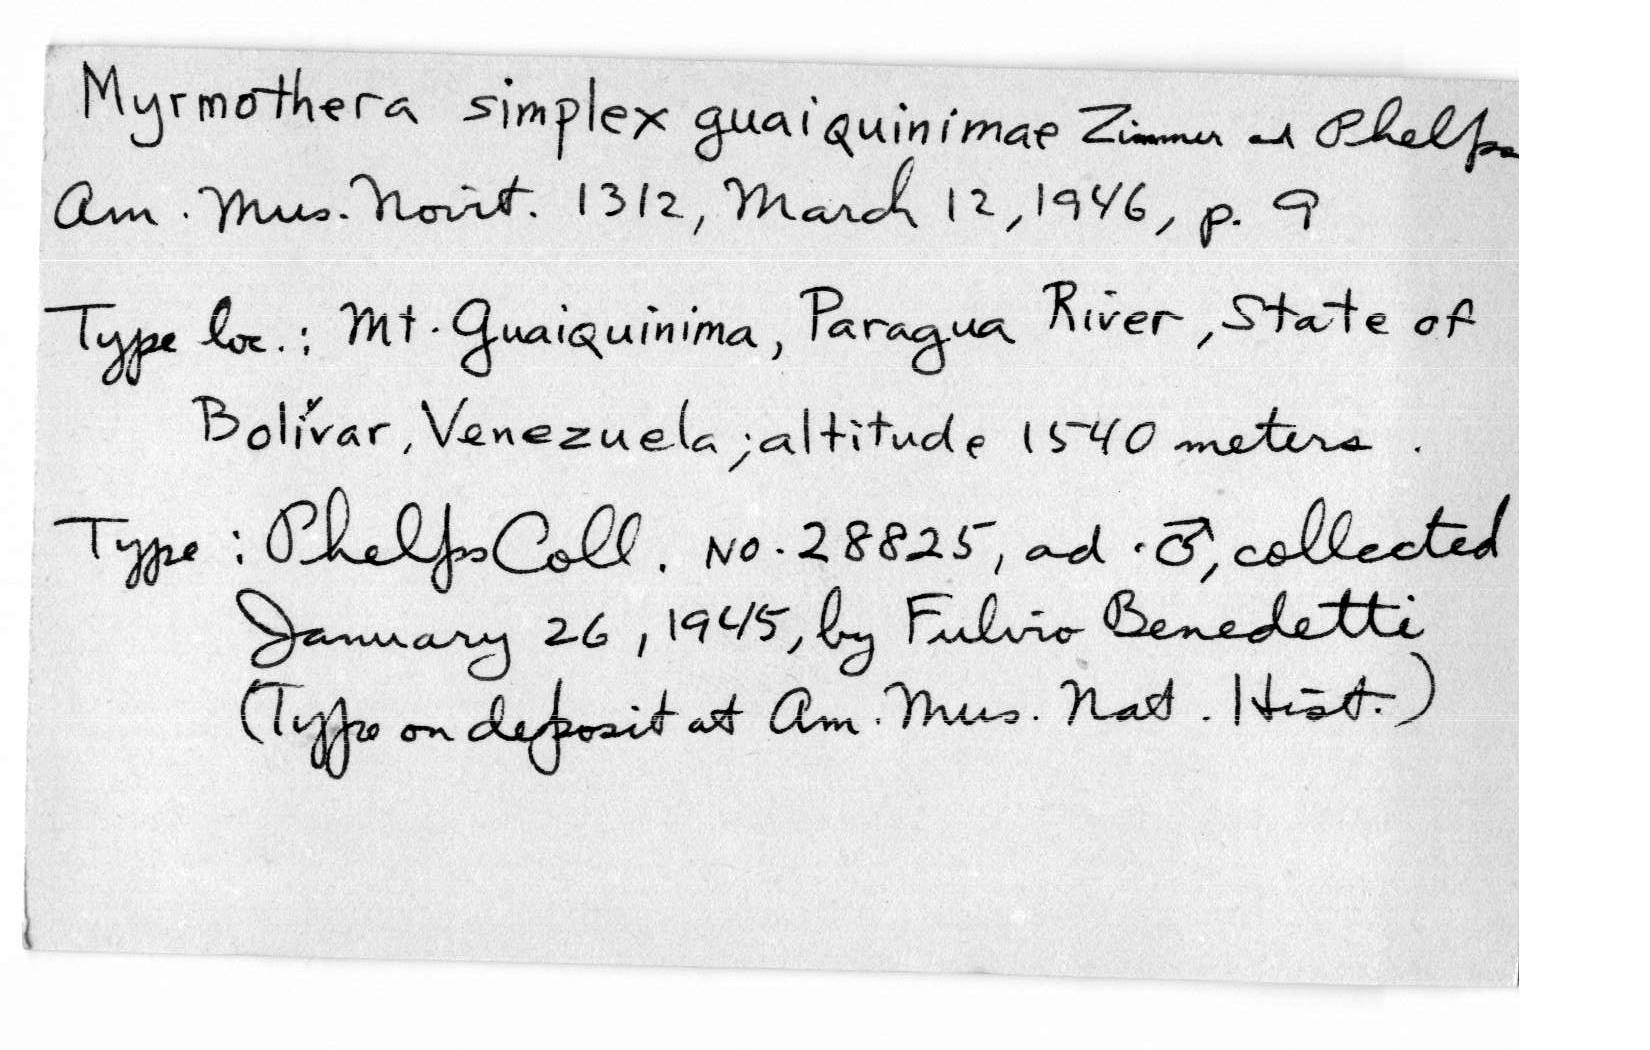 Myrmothera simplex guaiquinimae Zimmer and Phelps
Am. Mus. Novit. 1312, March 12, 1946, p. 9
Type loc.: Mt. Guaiquinima, Paragua River, State of
Bolívar, Venezuela; altitude 1540 meters.
Type: Phelps Coll. No. 28825, ad. ♂, collected
January 26, 1945, by Fulvio Benedetti
(Type on deposit at Am. Mus. Nat. Hist.)